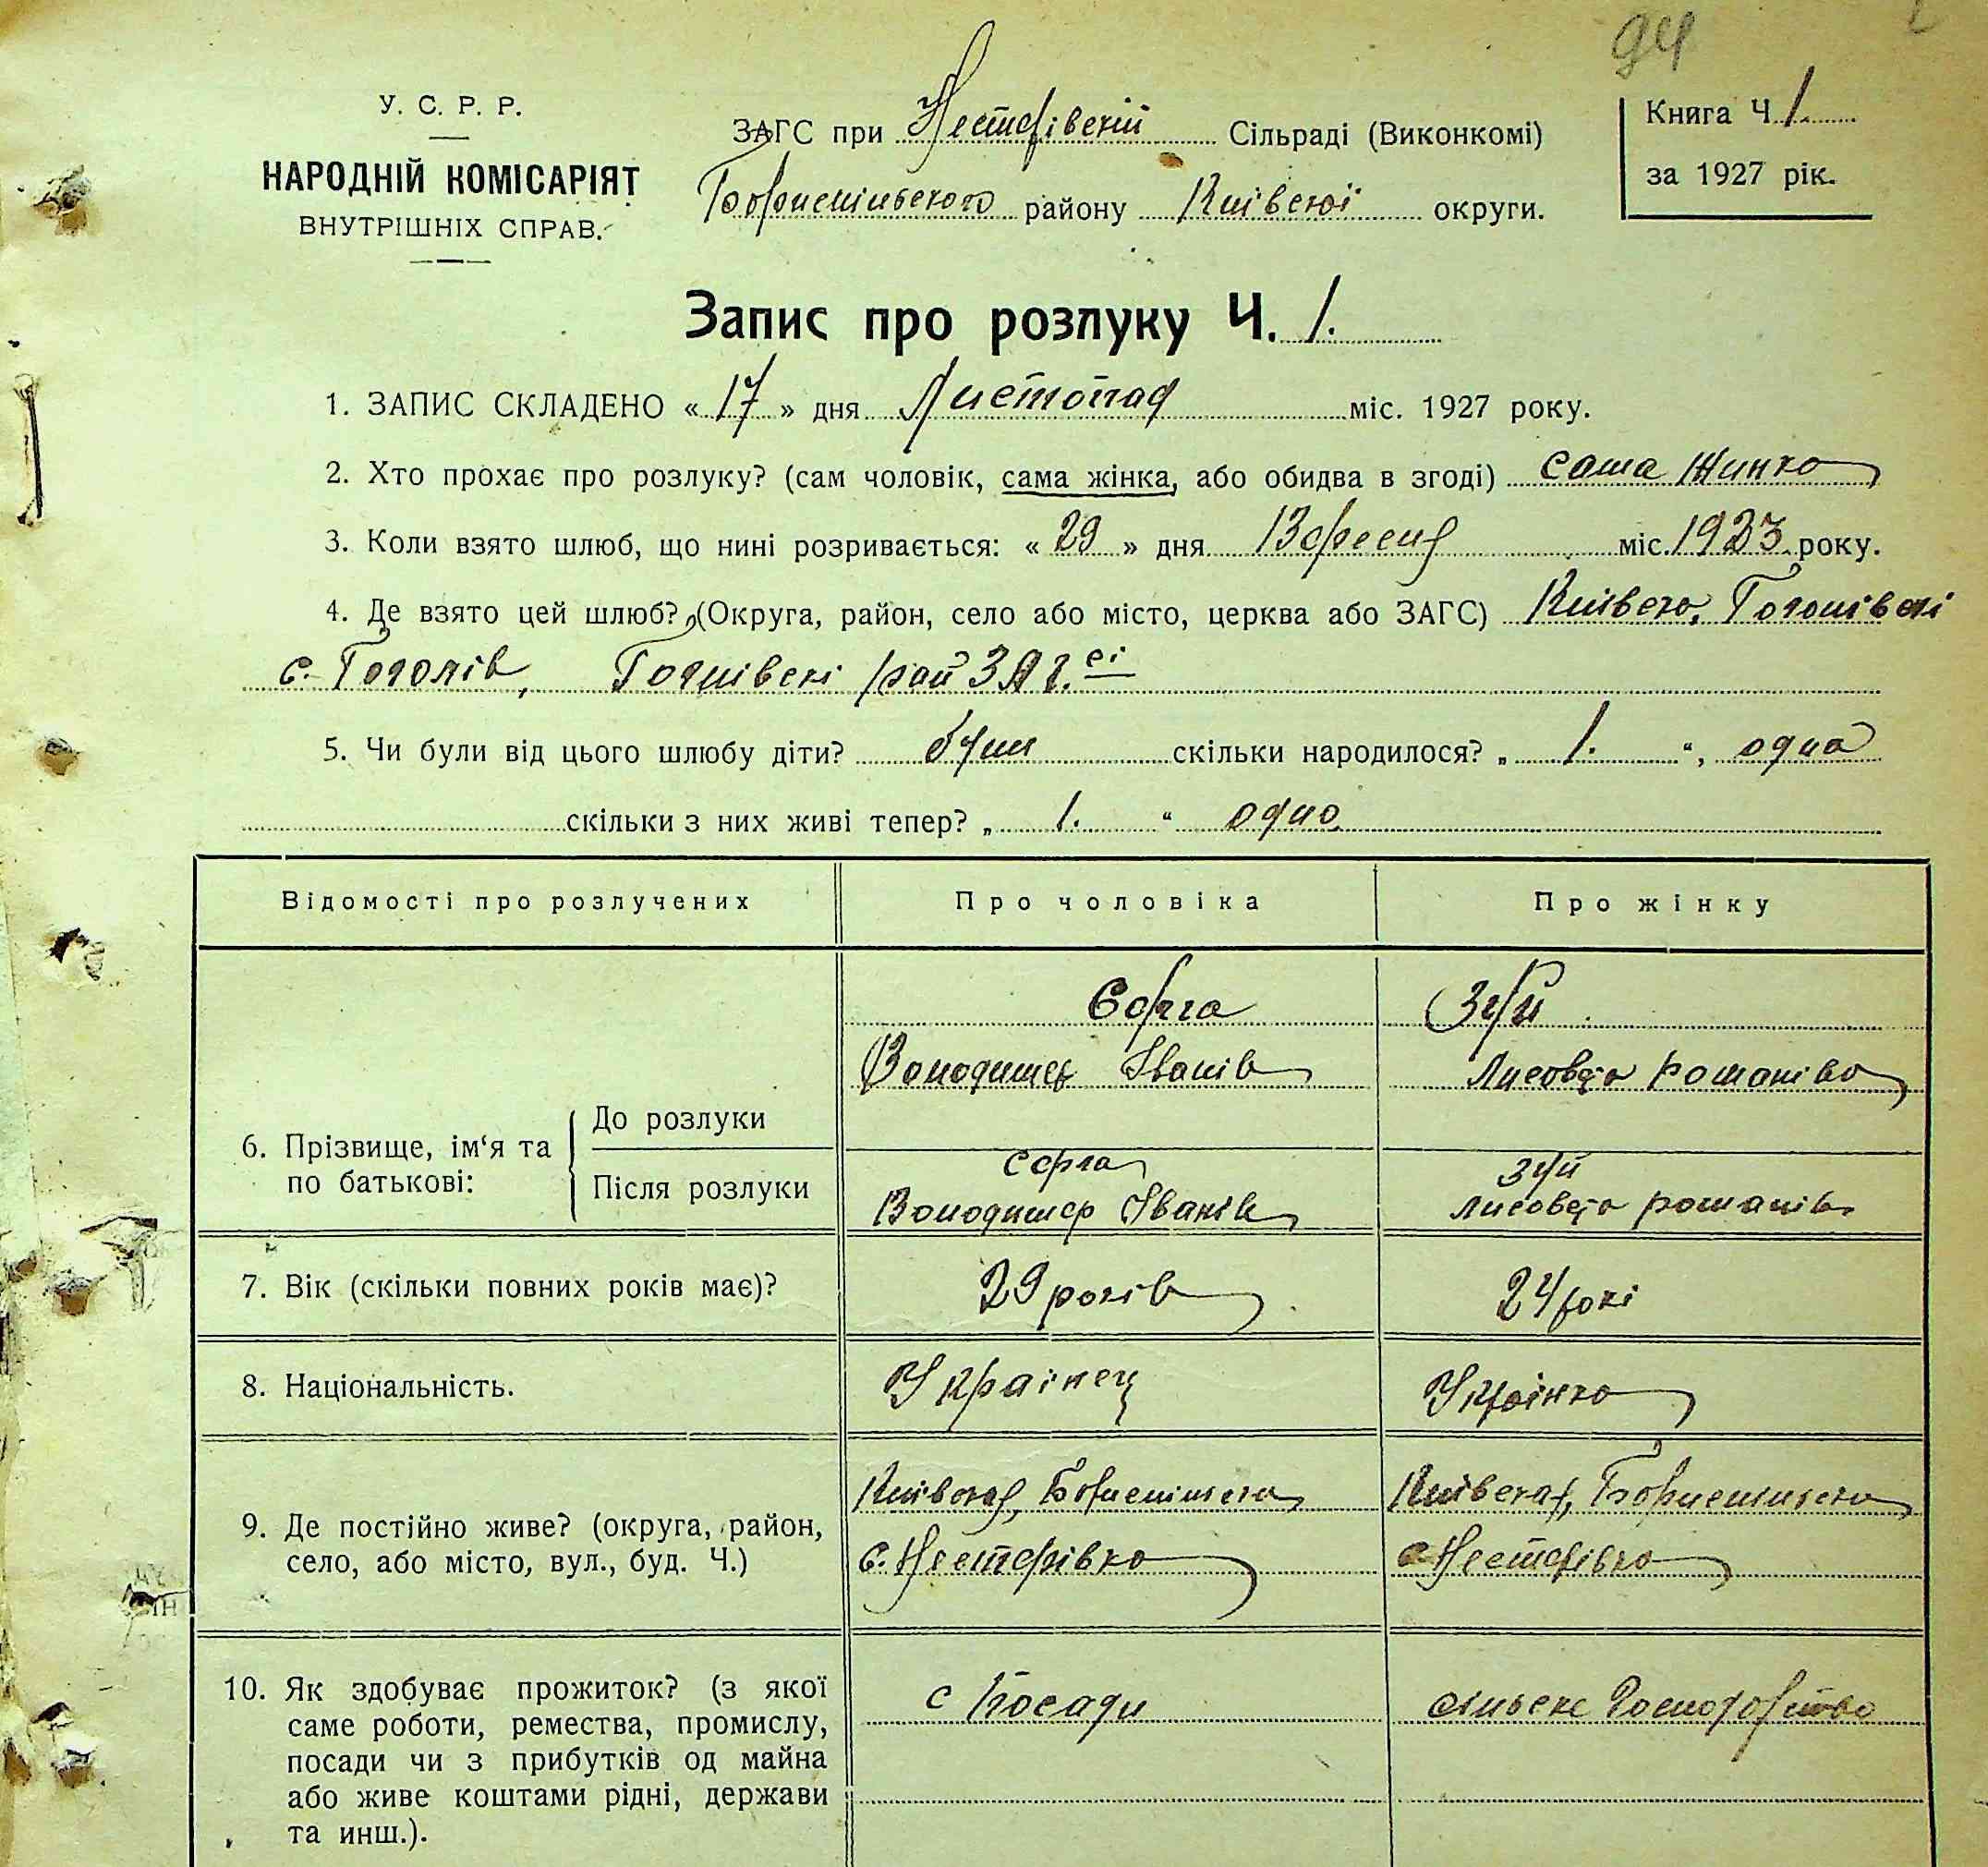 94
У. С. Р. Р.
НАРОДНІЙ КОМІСАРІЯТ
ВНУТРІШНІХ СПРАВ.
ЗАГС при Нестерівській Сільраді (Виконкомі)
Бориспільського району Київської округи.
Книга Ч. 1.
за 1927 рік.
Запис про розлуку Ч. 1.
1. ЗАПИС СКЛАДЕНО « 17 » дня Листопад міс. 1927 року.
2. Хто прохає про розлуку? (сам чоловік, сама жінка, або обидва в згоді) сама жинка
3. Коли взято шлюб, що нині розривається: « 29 » дня Вересня міс. 1923 року.
4. Де взято цей шлюб? (Округа, район, село або місто, церква або ЗАГС) Київська, Гоголівскі
с. Гоголів,
5. Чи були від цього шлюбу діти? були скільки народилося? „ 1. “, одна
скільки з них живі тепер? „ 1. “ одно
Відомості про розлучених
Про чоловіка
Про жінку
6. Прізвище, ім‘я та по батькові:
До розлуки
Володимер Іванів
Лисовета романівна
Після розлуки
Володимер Іванів
Лисовета романів
7. Вік (скільки повних років має)?
29 років
24 рокі
8. Національність.
Украінец
Українка
9. Де постійно живе? (округа, район,
село, або місто, вул., буд. Ч.)
Київская, Бориспільска
с. Нестерівка
Київская, Бориспільска
с. Нестерівка
10. Як здобуває прожиток? (з якої
саме роботи, ремества, промислу,
посади чи з прибутків од майна
або живе коштами рідні, держави
та инш.).
с Посади
сільске Господорство